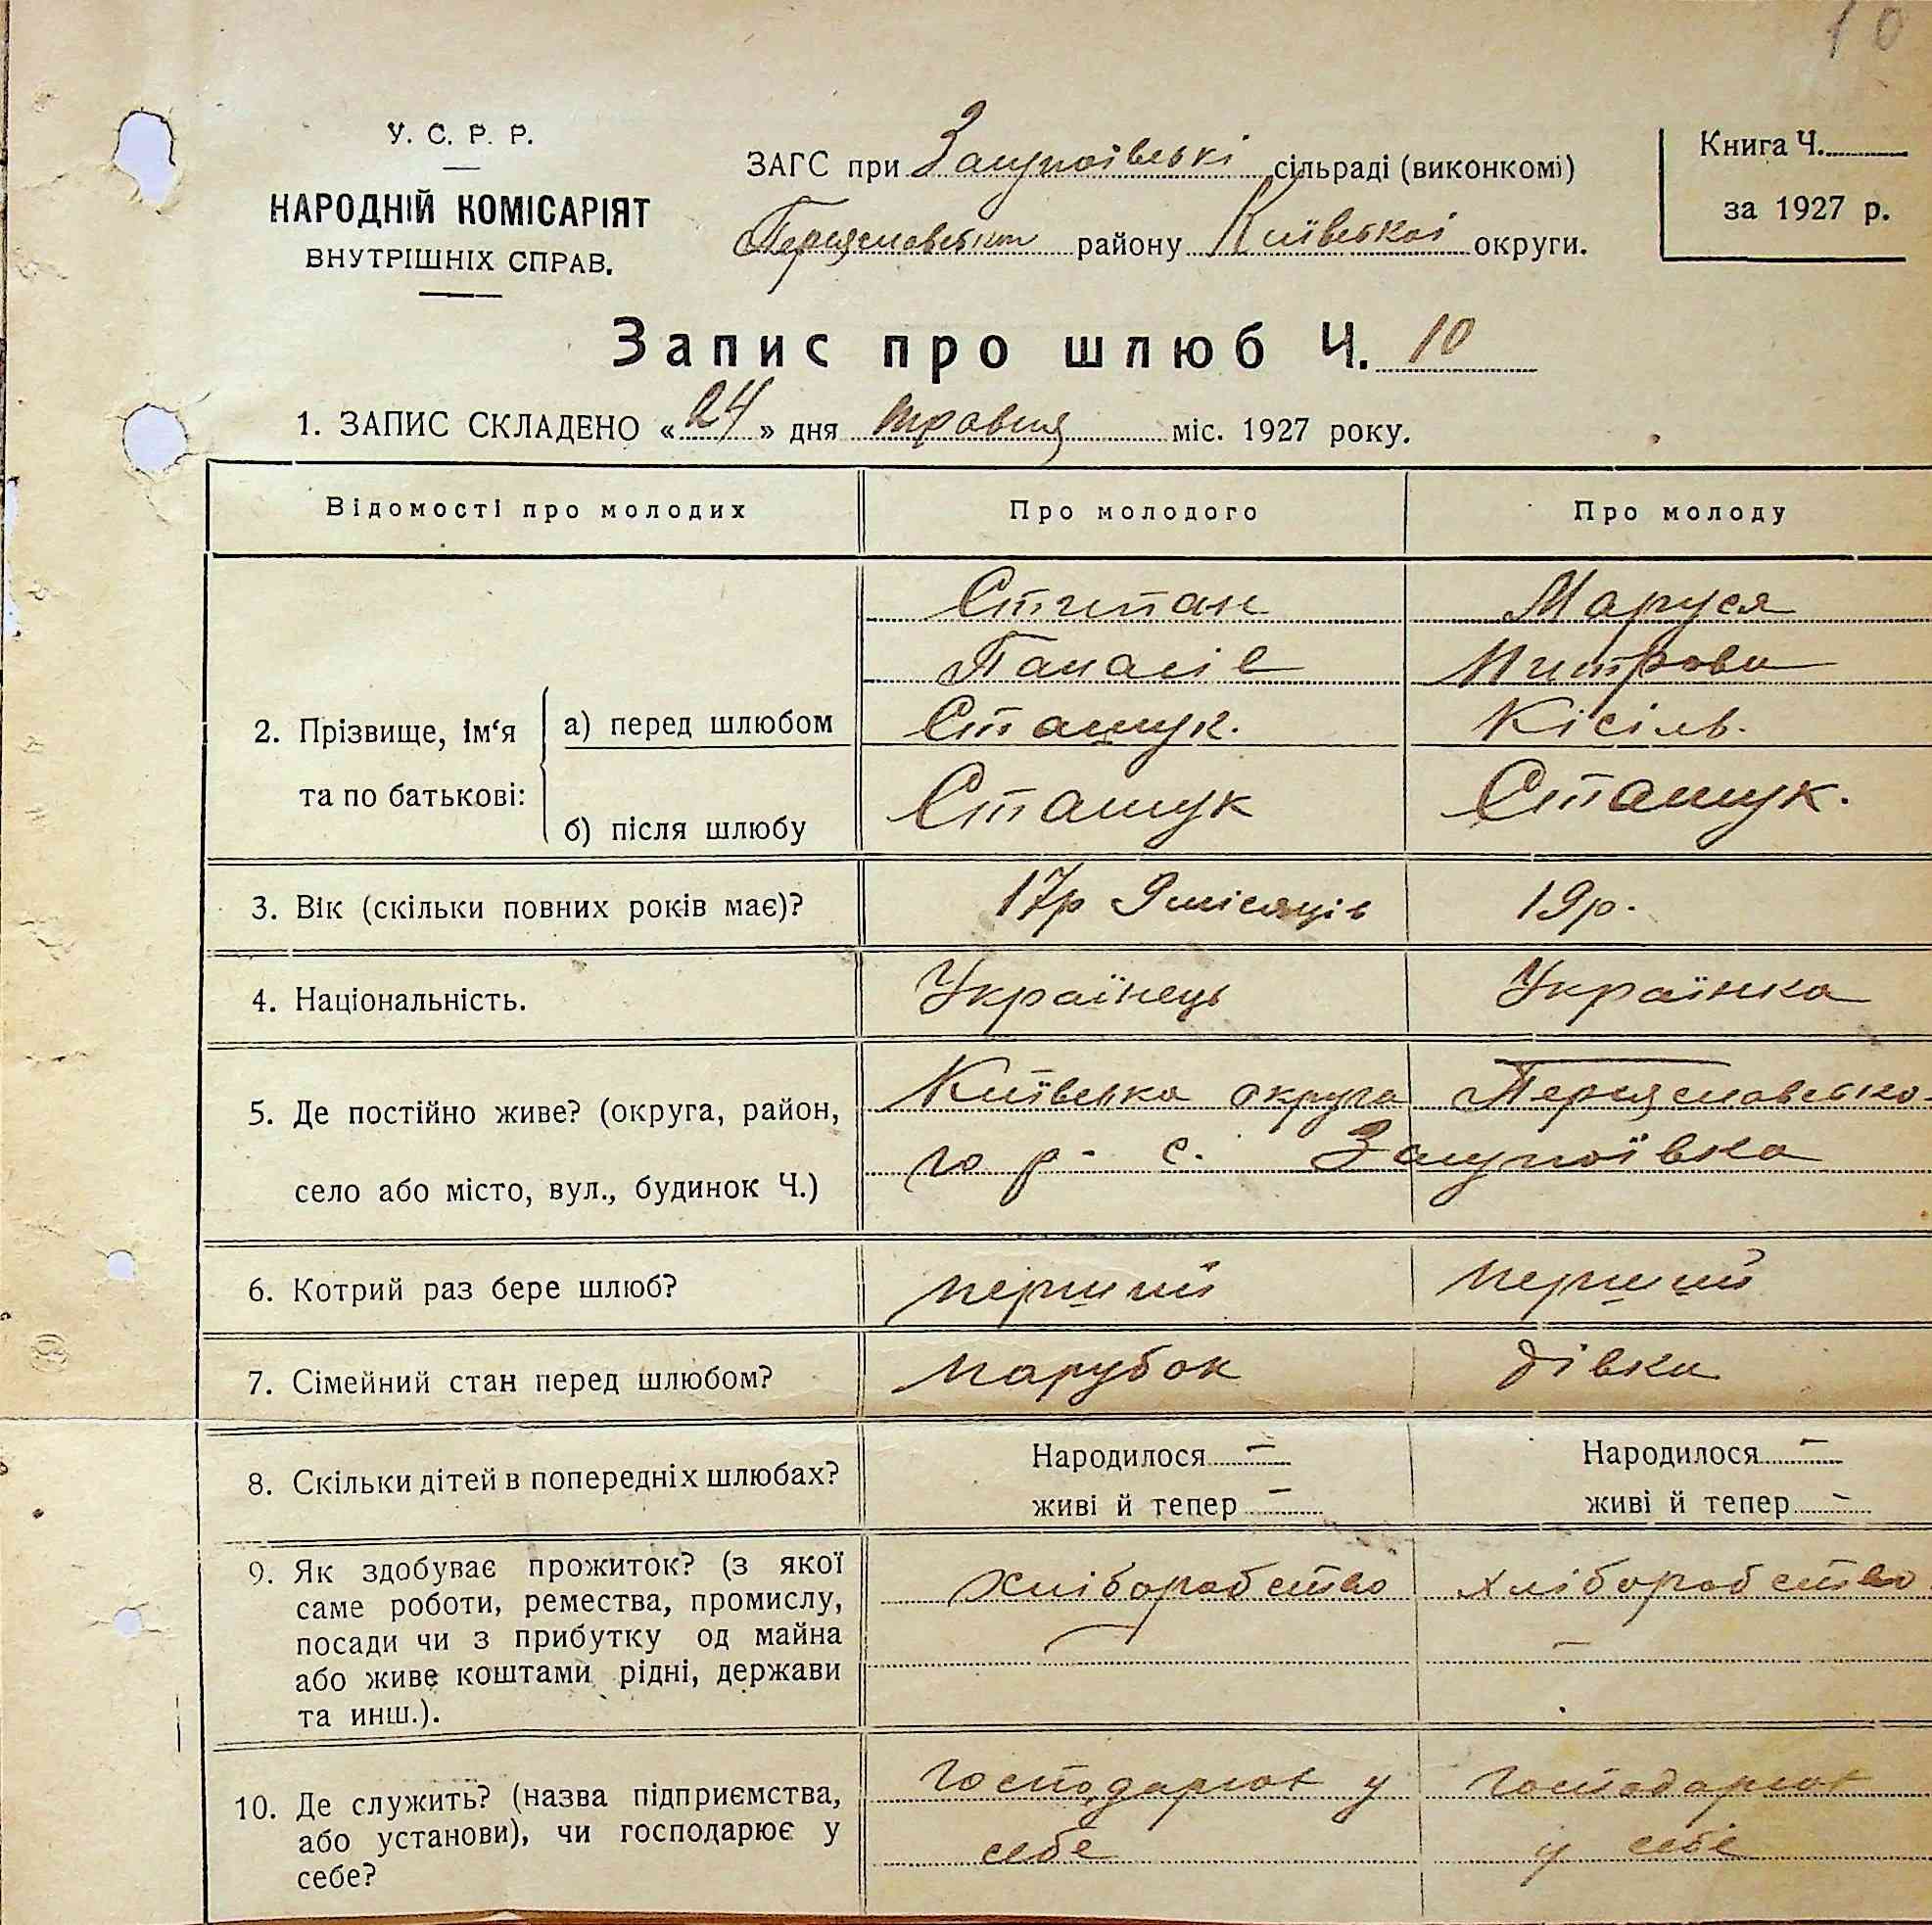 10
У. С. Р. Р.
НАРОДНІЙ КОМІСАРІЯТ
ВНУТРІШНІХ СПРАВ.
ЗАГС при Засупоївські сільраді (виконкомі)
району Київської округи.
Книга Ч.
за 1927 р.
Запис про шлюб Ч. 10
1. ЗАПИС СКЛАДЕНО «24» дня травня міс. 1927 року.
Відомості про молодих
Про молодого
Про молоду
2. Прізвище, ім‘я
та по батькові:
а) перед шлюбом
б) після шлюбу
Степан
Панасів
Сташук.
Сташук
Маруся
Митрова
Кісіль.
Сташук.
3. Вік (скільки повних років має)?
17р 9 місяців
19р.
4. Національність.
Українець
Українка
5. Де постійно живе? (округа, район,
село або місто, вул., будинок Ч.)
Київська округа Переяславсько-
го р- с. Засупоївка
6. Котрий раз бере шлюб?
перший
перший
7. Сімейний стан перед шлюбом?
парубок
дівка
8. Скільки дітей в попередніх шлюбах?
Народилося —
живі й тепер —
Народилося —
живі й тепер -
9. Як здобуває прожиток? (з якої
саме роботи, ремества, промислу,
посади чи з прибутку од майна
або живе коштами рідні, держави
та инш.).
хліборобство
хліборобство
10. Де служить? (назва підприємства,
або установи), чи господарює у
себе?
господарює у
себе
господарює
у себе